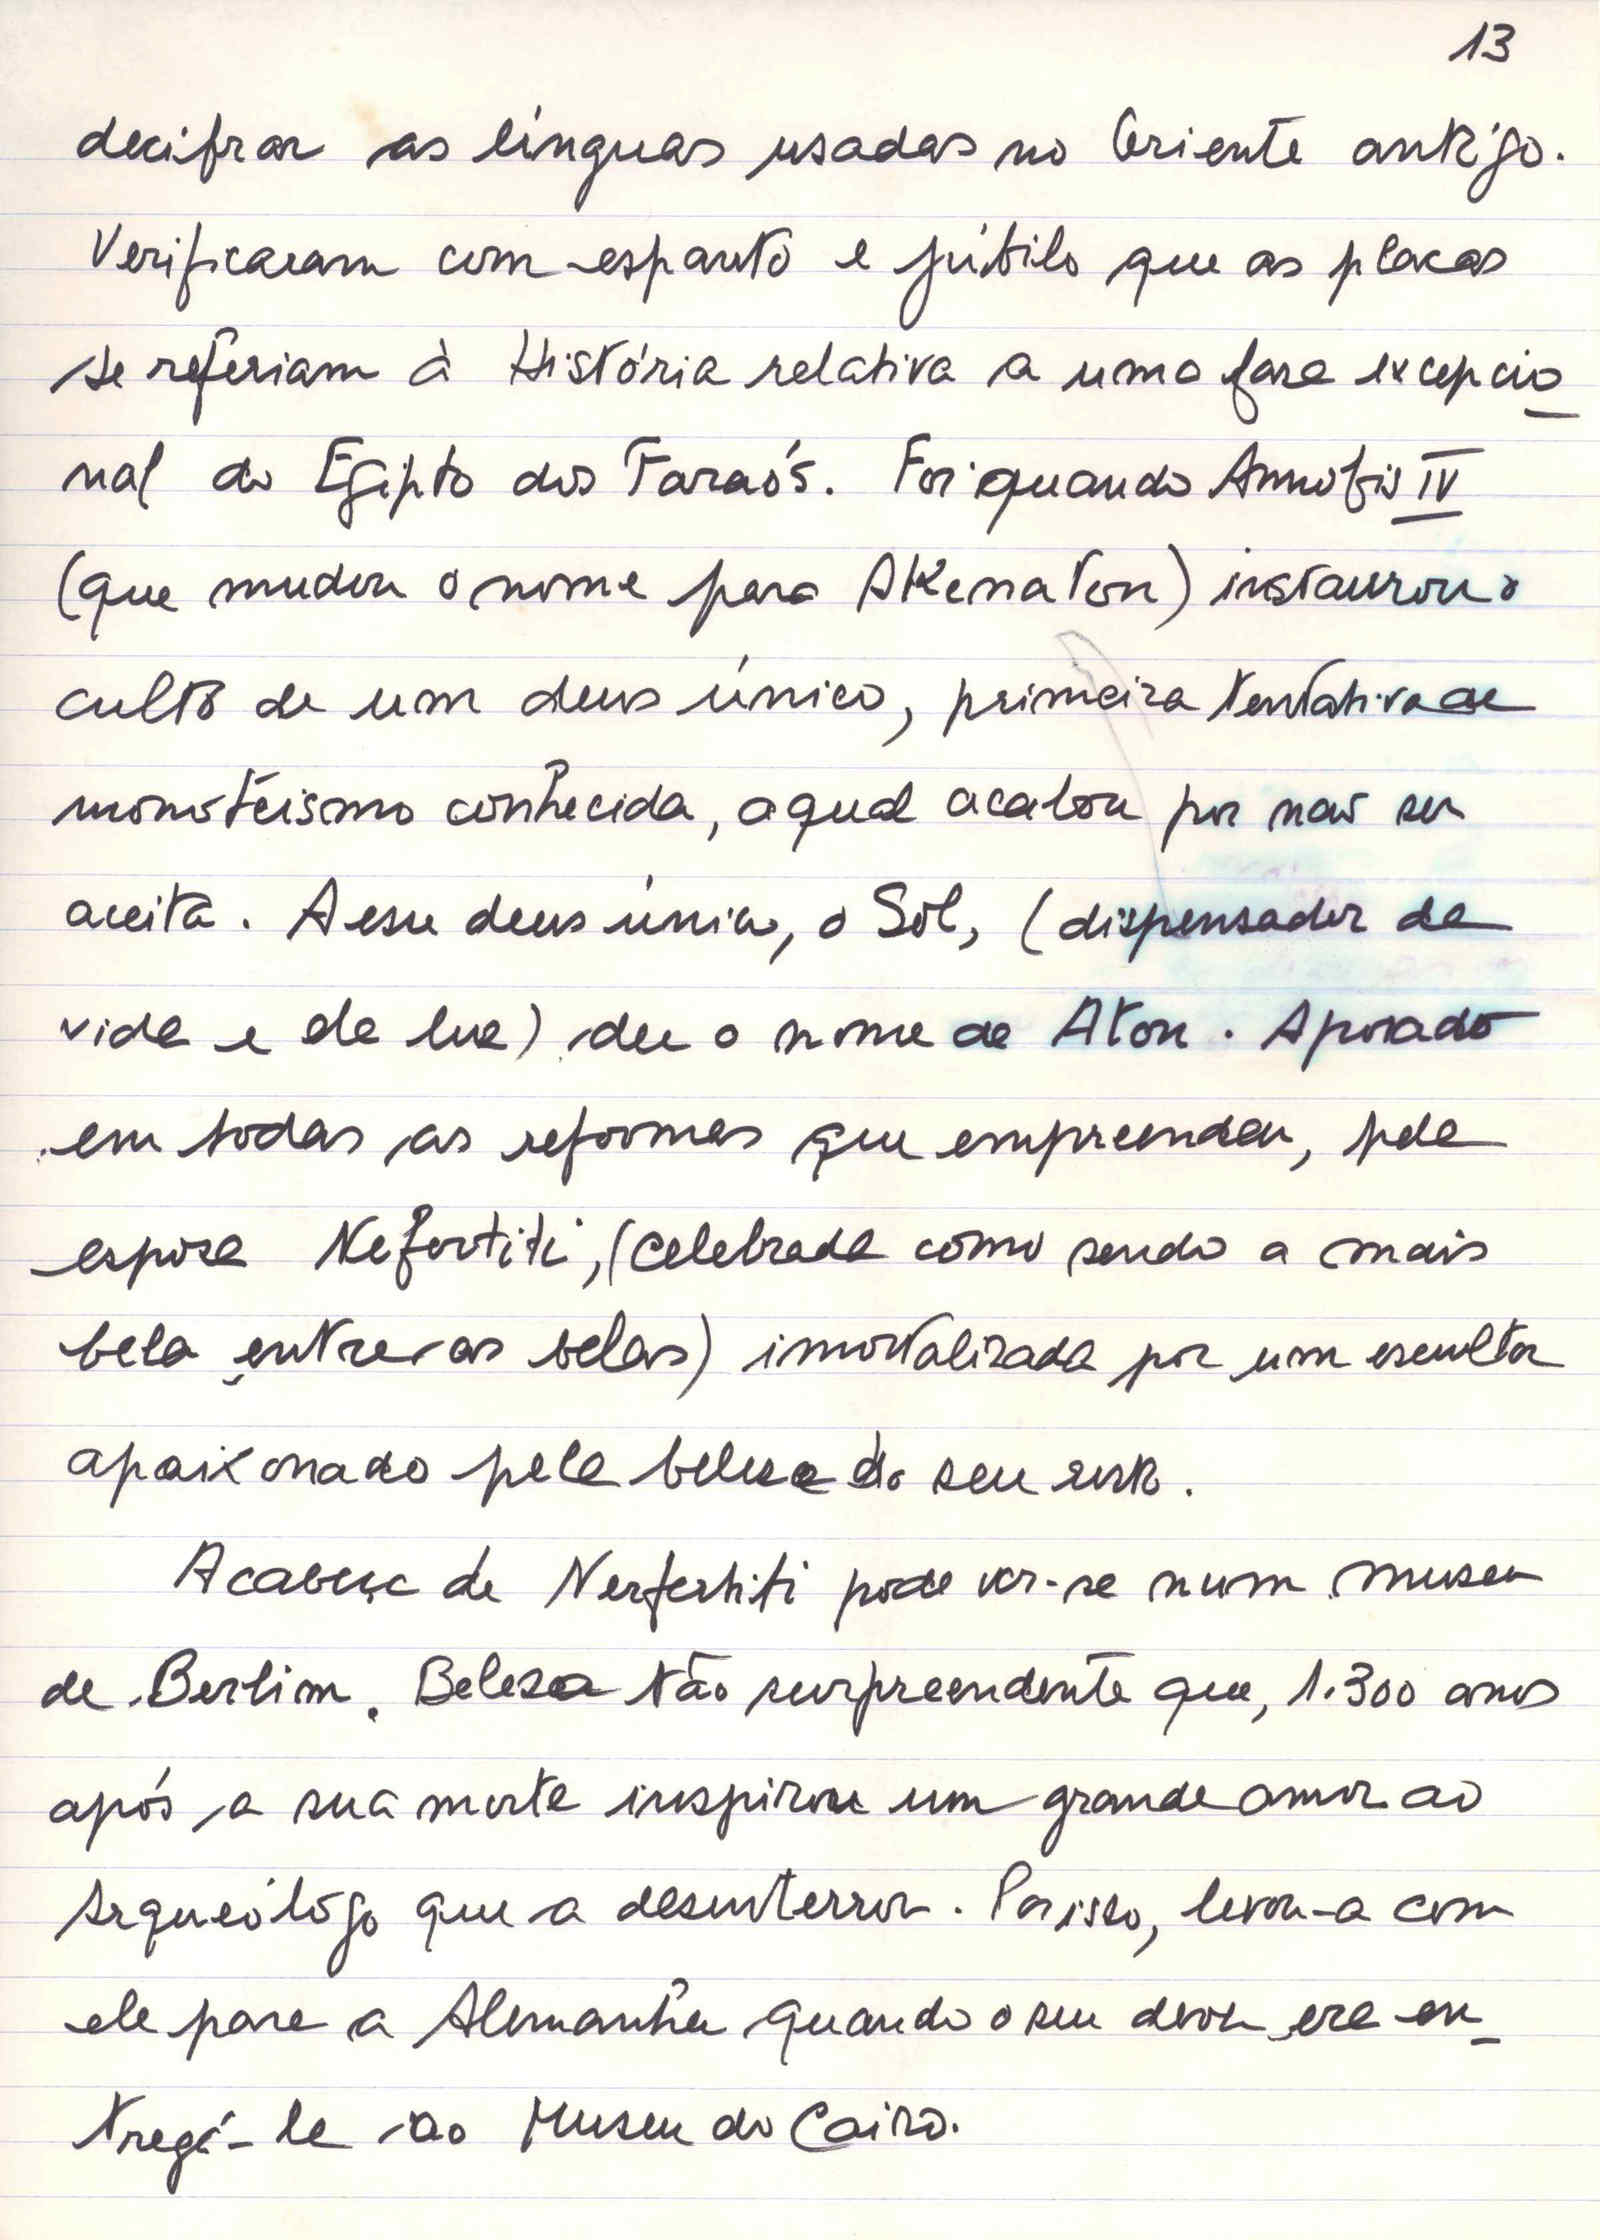 13
decifrar as línguas usadas no Oriente antigo.
Verificaram com espanto e júbilo que as placas
se referiam à História relativa a uma fase excepcio_
nal do Egipto dos Faraós. Foi quando Amnófis IV
(que mudou o nome para AKenaton) instaurou o
culto de um deus único, primeira tentativa de
monoteísmo conhecida, a qual acabou por não ser
aceita. A esse deus único, o Sol, (dispensador da
vida e da luz) deu o nome de Aton. Apoiado
em todas as reformas que empreendeu, pela
esposa Nefertiti, (celebrada como sendo a mais
bela entre as belas) imortalizada por um escultor
apaixonado pela beleza do seu rosto.
A cabeça de Nerfertiti pode ver-se num museu
de Berlim. Beleza tão surpreendente que, 1.300 anos
após a sua morte inspirou um grande amor ao
Arqueólogo que a desenterrou. Por isso, levou-a com
ele para a Alemanha quando o seu dever era en_
tregá-la ao Museu do Cairo.